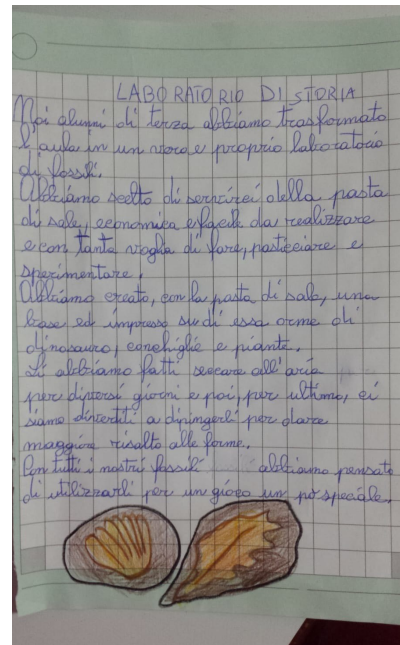 LABORATORIO DI STORIA
Noi alunni di terza abbiamo trasformato
l'aula in un vero e proprio laboratorio
di fossili.
Abbiamo scelto di servirci della pasta
di sale, economica e facile da realizzare
e con tanta voglia di fare, pasticciare e
sperimentare.
Abbiamo creato, con la pasta di sale, una
base ed impresso su di essa orme di
dinosauro, conchiglie e piante.
Li abbiamo fatti seccare all'aria
per diversi giorni e poi, per ultimo, ci
siamo divertiti a dipingerli per dare
maggiore risalto alle forme.
Con tutti i nostri fossili abbiamo pensato
di utilizzarli per un gioco un po' speciale.